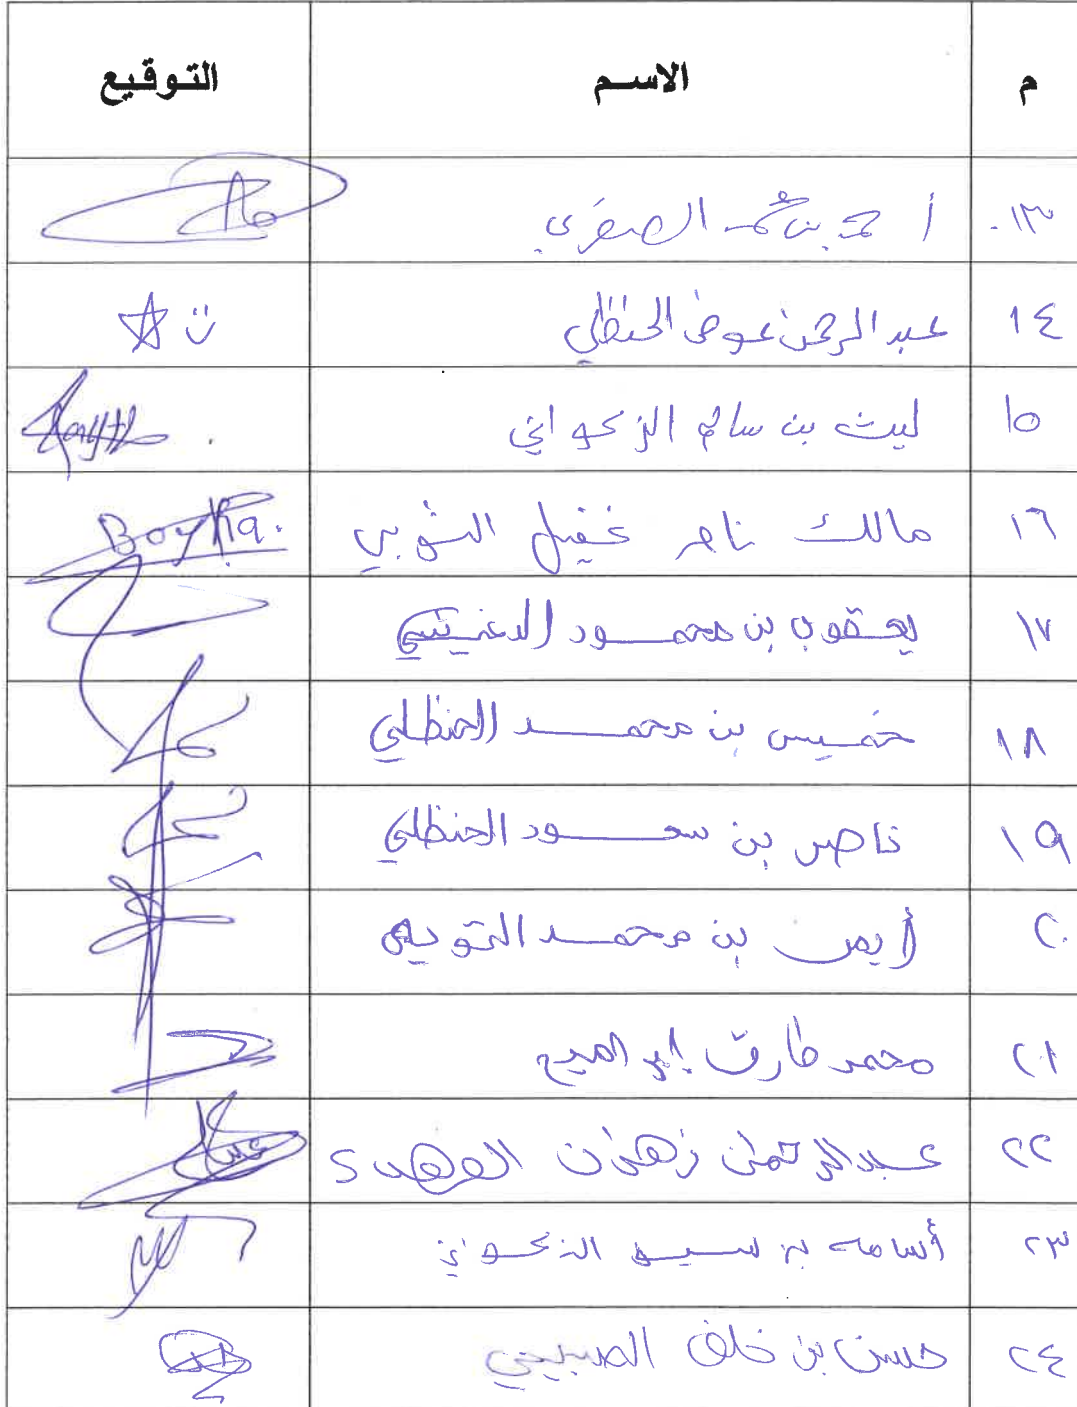 م الاسم التوقيع
١٣. أحمد بن محمد الصقري
١٤ عبدالرحمن عوض الحنظلي
١٥ ليث بن سالم الزكواني Layth
١٦ مالك ناصر غفيل Boyka.
١٧ يعقوب بن محمود الدغيشي
١٨ خميس بن محمد الحنظلي
١٩ ناصر بن سعود الحنظلي
٢٠ أيمن بن محمد التوبي
٢١ محمد طارق إبراهيم
٢٢ عبدالرحمن زهران الفهدي
٢٣ أسامه بن سيف الزكواني
٢٤ حسن بن خلف الصبيحي